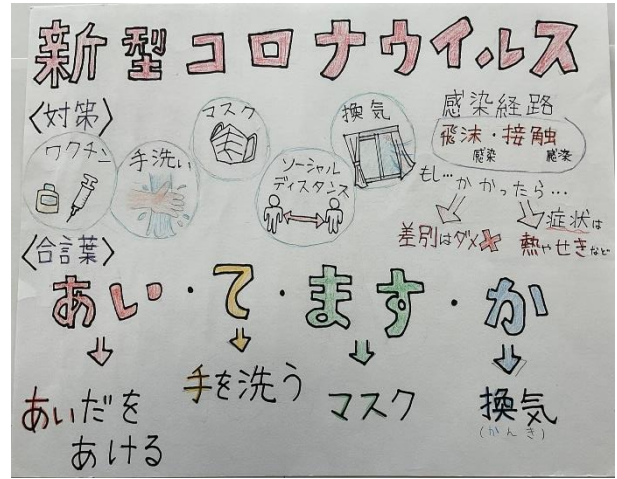 新型コロナウイルス
〈対策〉
ワクチン
手洗い
マスク
ソーシャル
ディスタンス
換気
感染経路
飛沫・接触
感染 感染
もし…かかったら…
差別はダメ
症状は
熱やせきなど
〈合言葉〉
あい・て・ます・か
あいだを
あける
手を洗う
マスク
換気
(かんき)